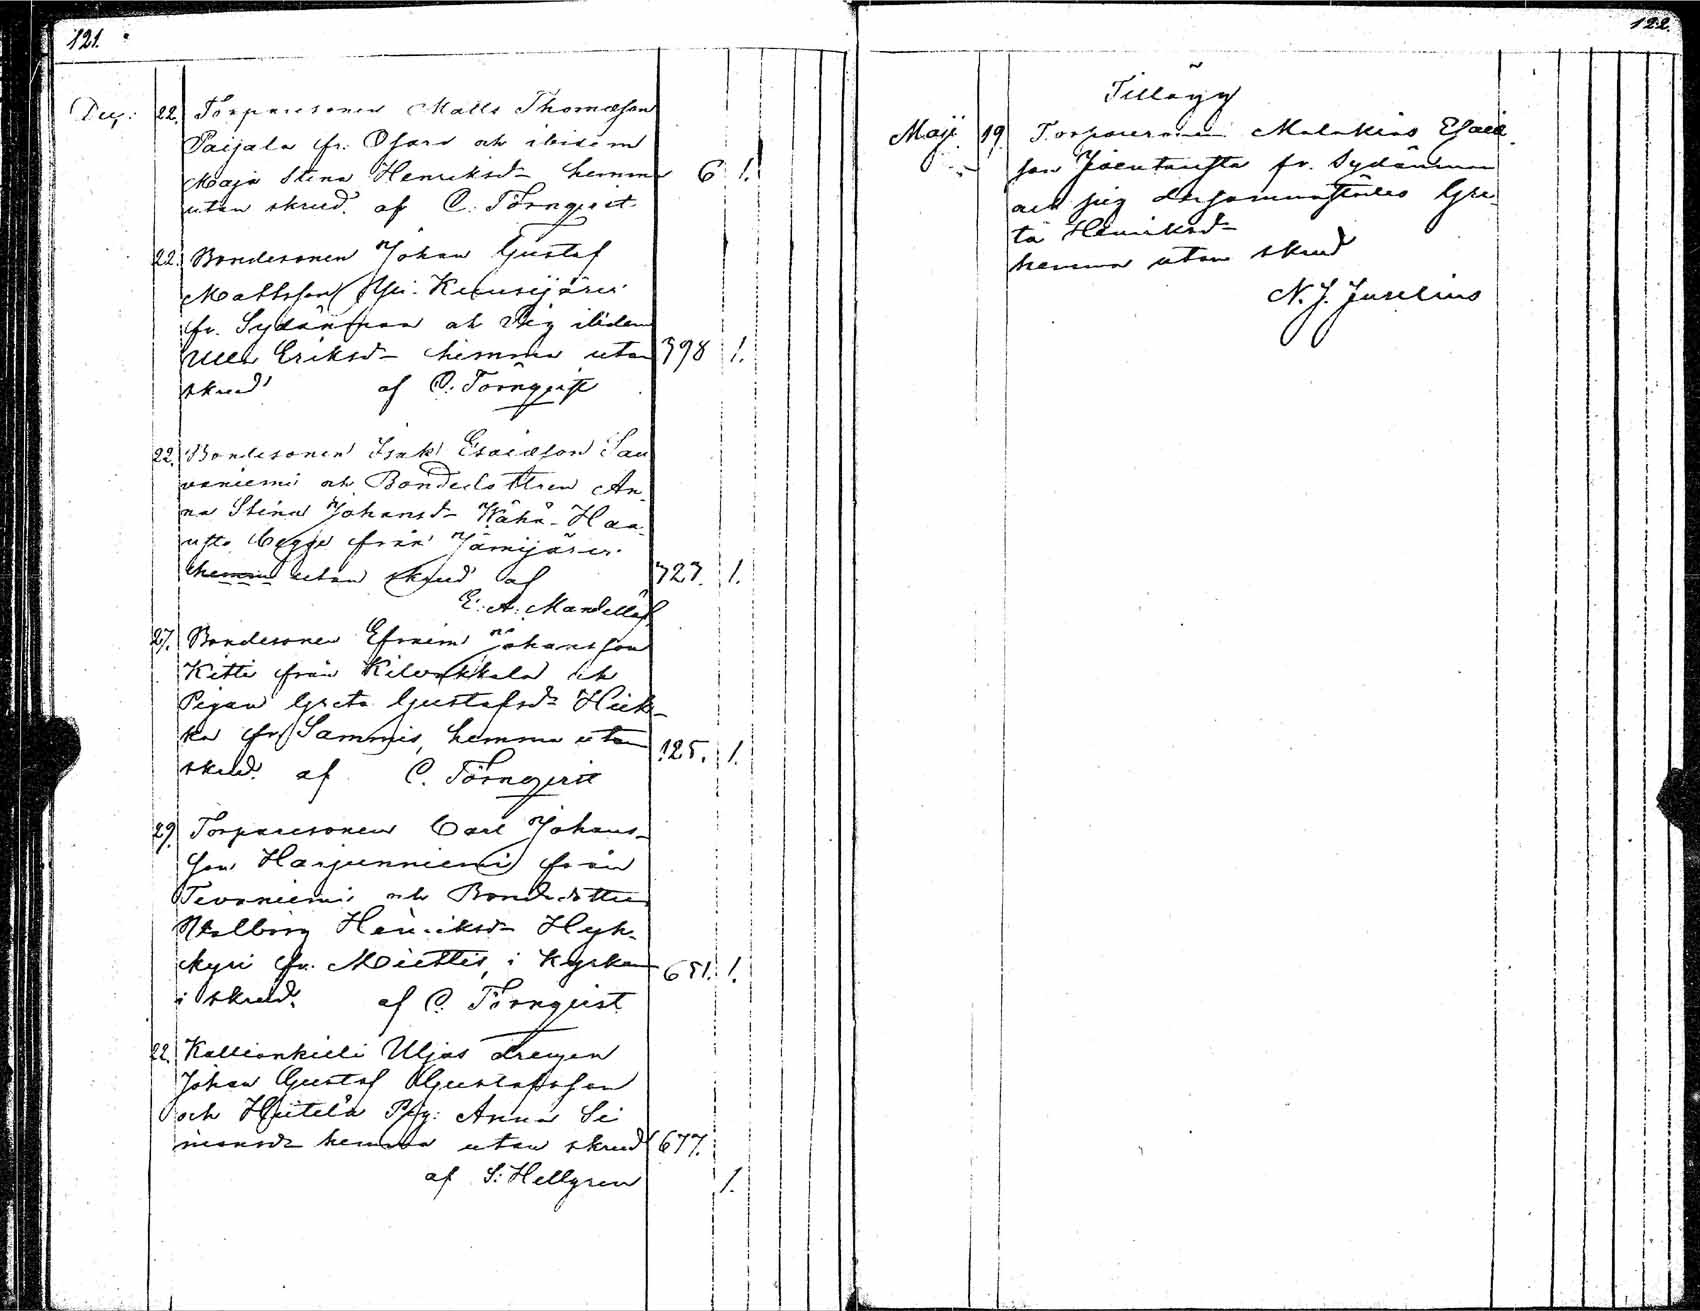 121.
Dec: 22. Torparesonen Matts Thomasson
Paijala fr. Osara och ibidem
Maja Stina Henriksd- hemma 6 1.
utan skrud. af C. Törnqvist
22. Bondesonen Johan Gustaf
Mattsson Yli-Keuusijärvi
fr. Sydänmaa och Pig ibidem
Ulla Eriksd- hemma utan 398 1.
skrud af C. Törnqvist
22. Bondesonen Isak Esaiasson Sau
vaniemi och Bondedottren An-
na Stina Johansd- Wähä-Haa-
visto begge från Jämijärvi
hemma utan skrud af 727. 1.
E. A. Mandellöf
27. Bondesonen Efraim Johansson
Kitti från Kilvakkala och
Pigan Greta Gustafsd- Hiek-
ka fr Sammis, hemma utan 125. 1.
skrud. af C. Törnqvist
29. Torparesonen Carl Johans-
son Harjunniemi från
Tevaniemi och Bondedotter
Walborg Henriksd- Hyh-
kyri fr. Miettis, i Kyrkan 651. 1.
i skrud. af C. Törnqvist
22. Kallionkieli Uljas drengen
Johan Gustaf Gustafsson
och Heitelä Pig: Anna Si
monsd- hemma utan skrud 677.
af S: Hellgren 1.
122.
Tillägg
Maji 19. Torparesonen Malakias Esaia
son fr. Sydänmaa
och pig Gre-
ta Henriksd-
hemma utan skrud
N. J. Juselius